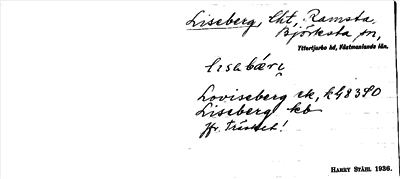 Liseberg, lht, Ramsta,
Björksta sn,
Yttertjurbo hd, Västmanlands län.
lisabärj
Loviseberg ek, k G8390
Liseberg kb
Jfr Träsket!
HARRY STÅHL 1936.